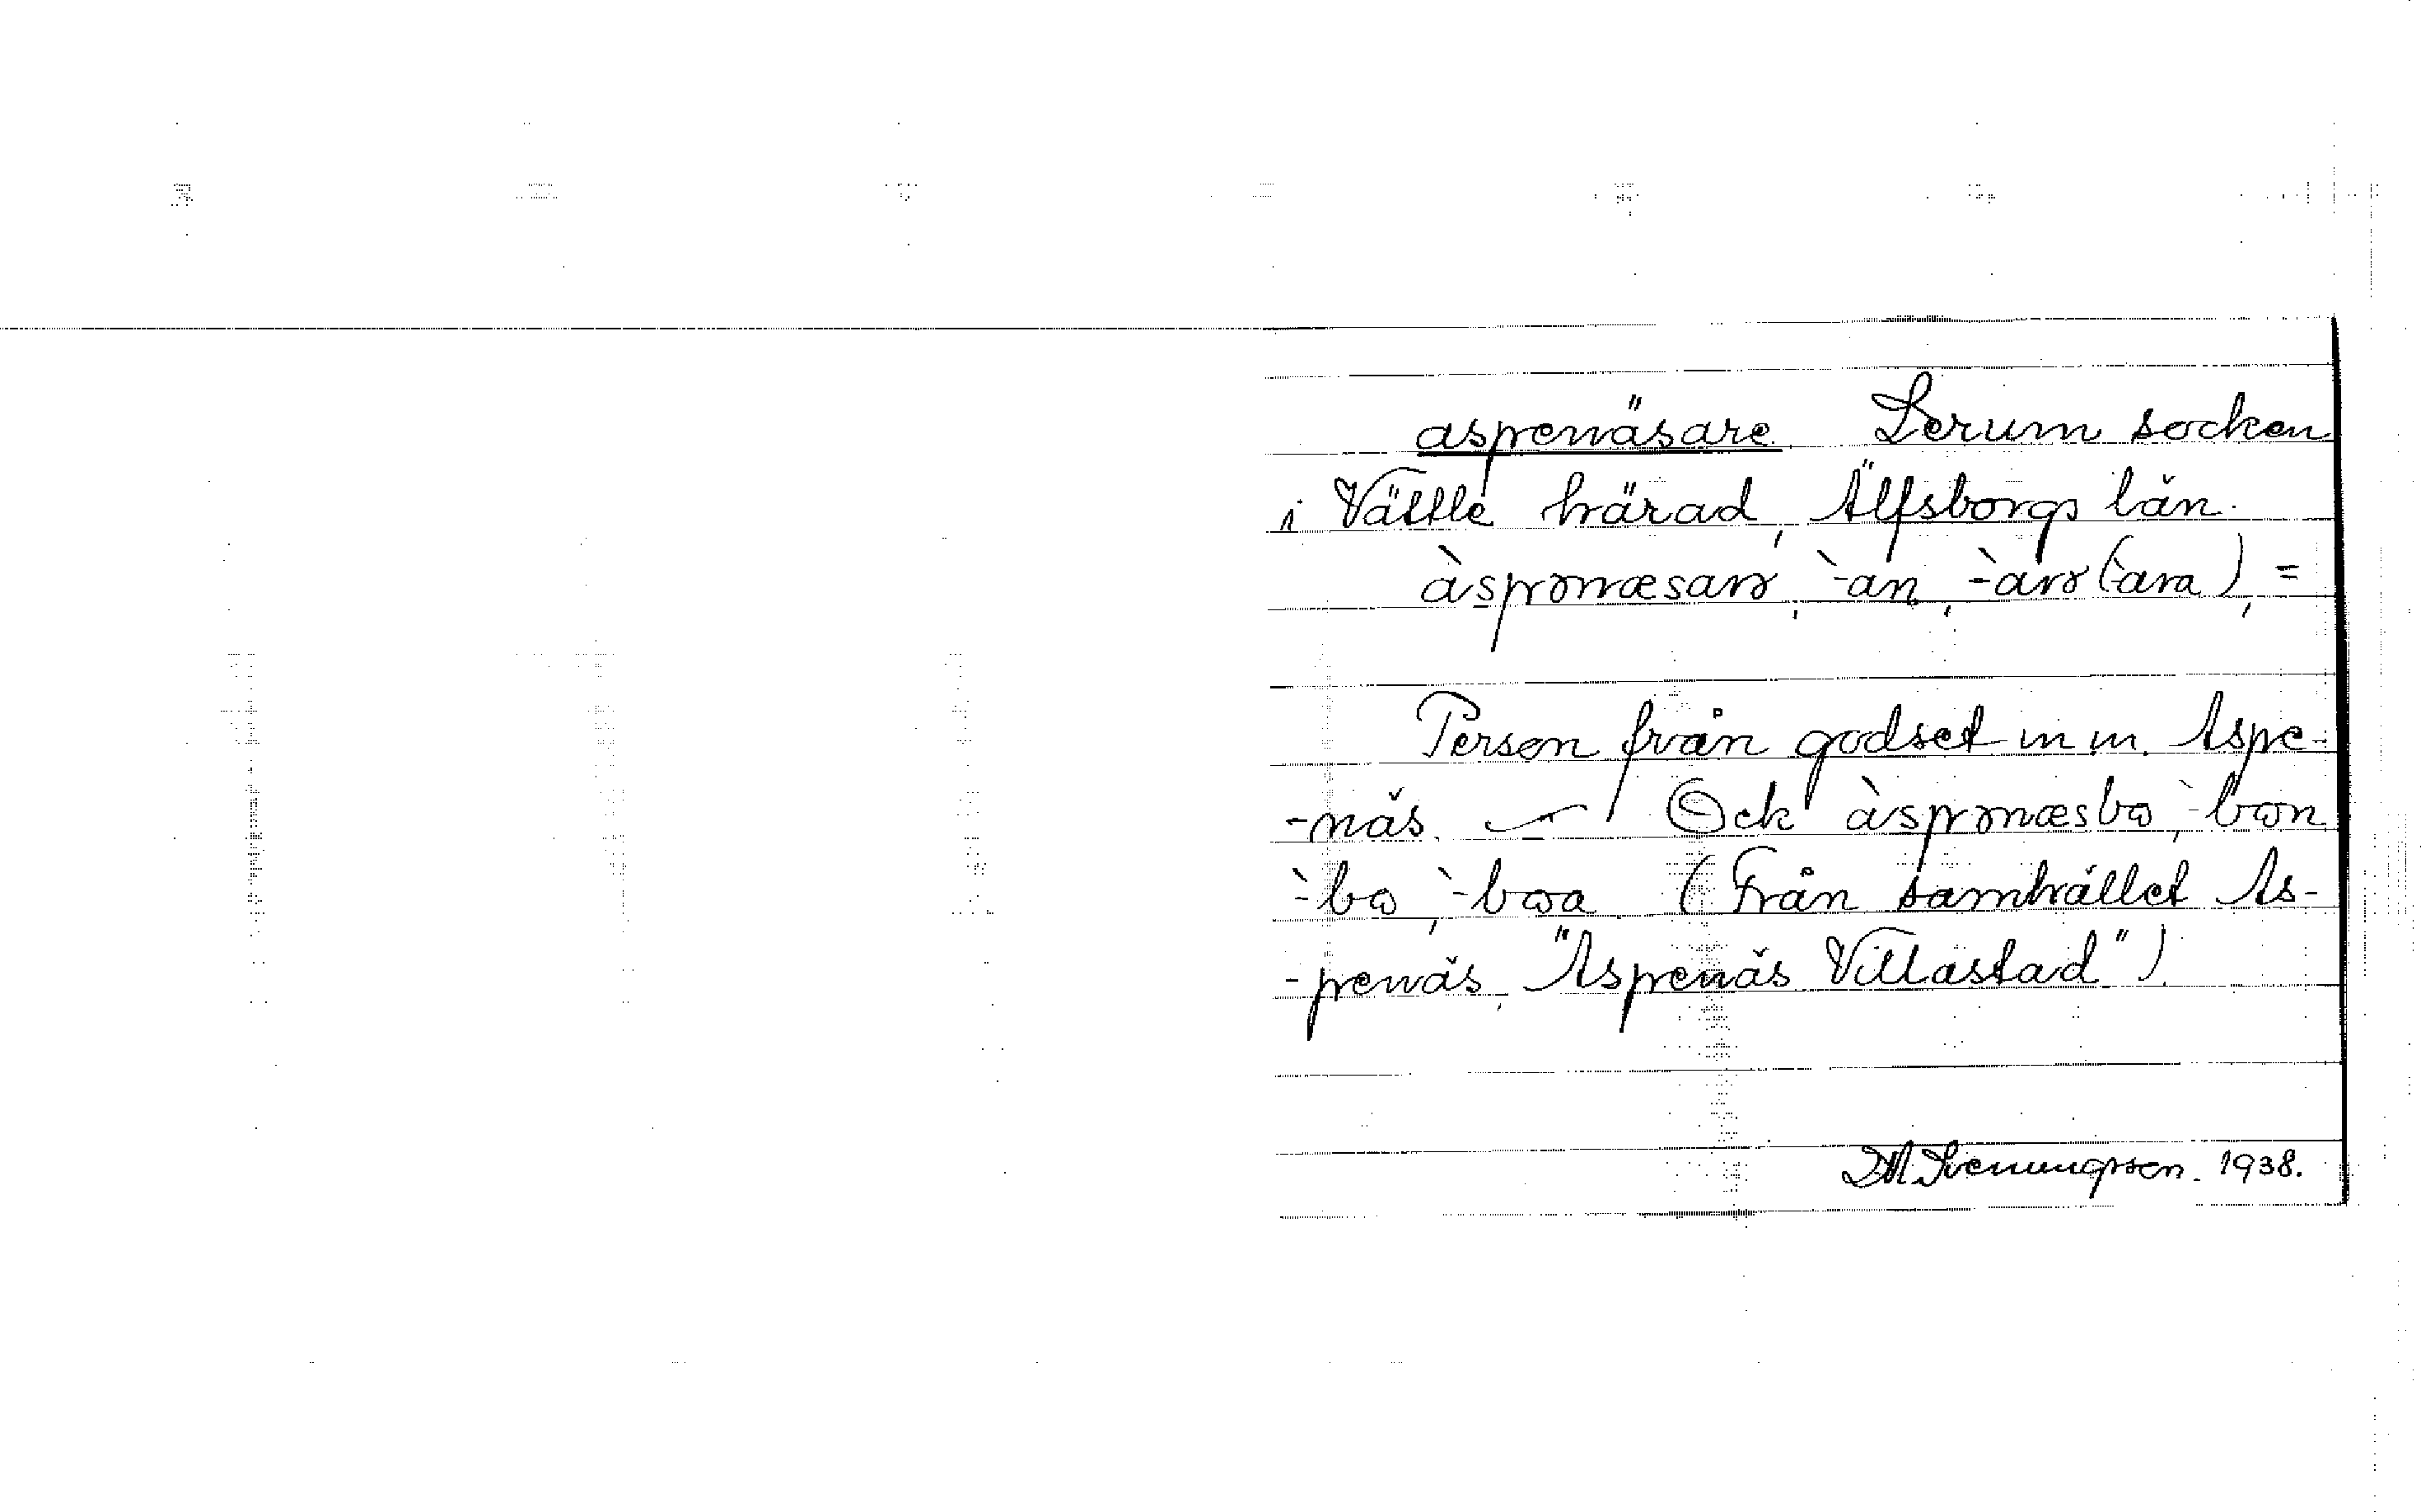 aspenäsare. Lerum socken
i Vättle härad, Älfsborgs län.
àspənæsarə, `-an, `-arə (-ara), =
Person från godset m m. Aspe-
-näs. — Ock àspənæsbo, `-bon
`-bo, `-boa. (Från samhället As-
-penäs, "Aspenäs Villastad").
DM. Svenungsson. 1938.